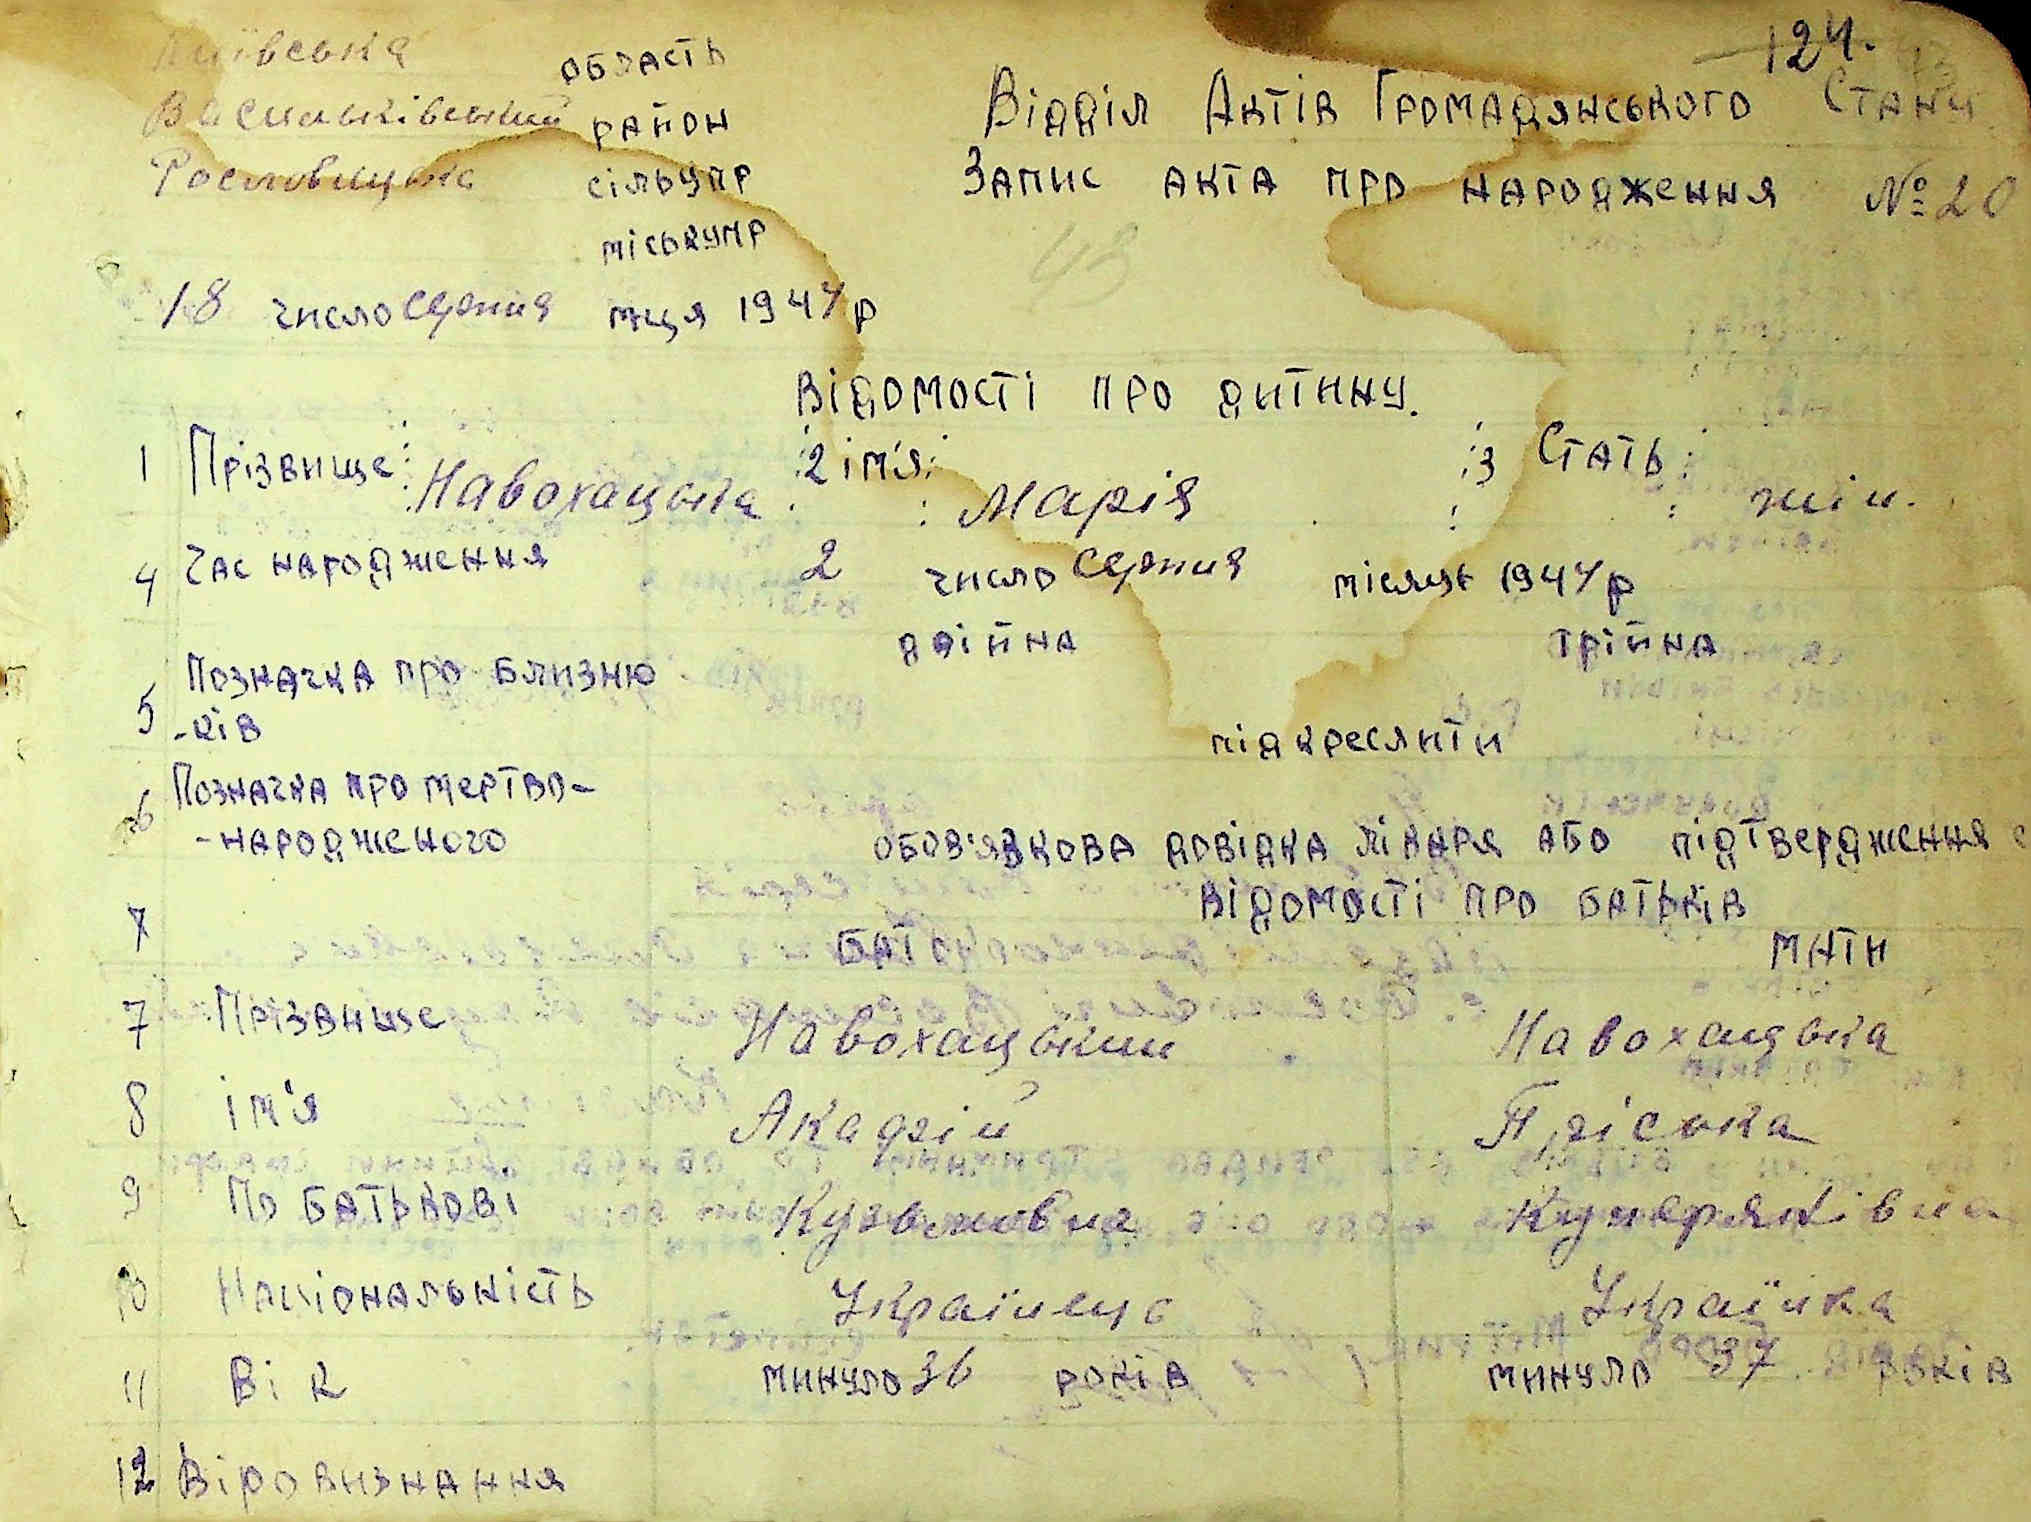 Київська область
Васильківський район
Рословицька сільупр
міськупр
124.
Відділ Актів Громадянського Стану
Запис акта про народження №20
43
18 число серпня м-ця 1944 р
Відомості про дитину.
1 Прізвище: Навохацька 2 ім'я: Марія 3 Стать: жін.
4 Час народження 2 число серпня місяць 1944 р
двійна трійна
5 Позначка про близню
-ків
підкреслити
6 Позначка про мертво-
-народженого
обов'язкова довідка лікаря або підтвердження
Відомості про батьків
7 Бать мати
7 Прізвище Навохацький Навохацька
8 ім'я Акадзій Прiська
9 По батькові Кузьмивна
10 Національність Українець Українка
11 Вік минуло 36 років минуло 37 років
12 Віровизнання